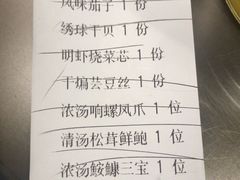 风味茄子 1 份
绣球干贝 1 份
明虾烧菜芯 1 份
干煸芸豆丝 1 份
浓汤响螺凤爪 1 位
清汤松茸鲜鲍 1 位
浓汤鮟鱇三宝 1 位